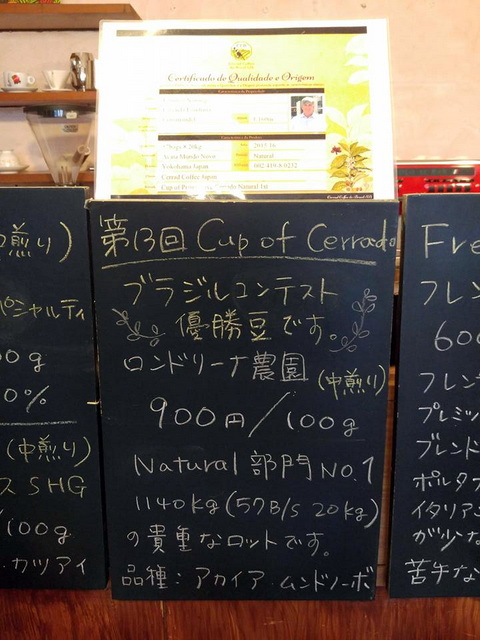 Certificado de Qualidade e Origem
2015/16
Natural
Yokohama Japan
Cerrad Coffee Japan
煎り)
シャルティ
0g
0%
(中煎り)
ス SHG
/100g
カツアイ
第13回 Cup of Cerrado
ブラジルコンテスト
優勝豆です。
ロンドリーナ農園
(中煎り)
900円/100g
Natural 部門 No.1
1140kg(57B/S 20kg)
の貴重なロットです。
品種:アカイア・ムンドノーボ
Fre
フレン
600
フレン
プレミッ
ブレンド
ポルタ
イタリアン
が少な
苦牛な